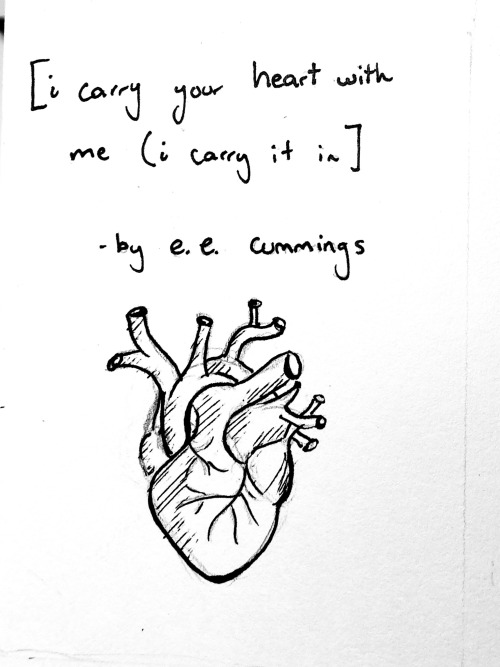 [i carry your heart with
me (i carry it in]
-by e.e. cummings